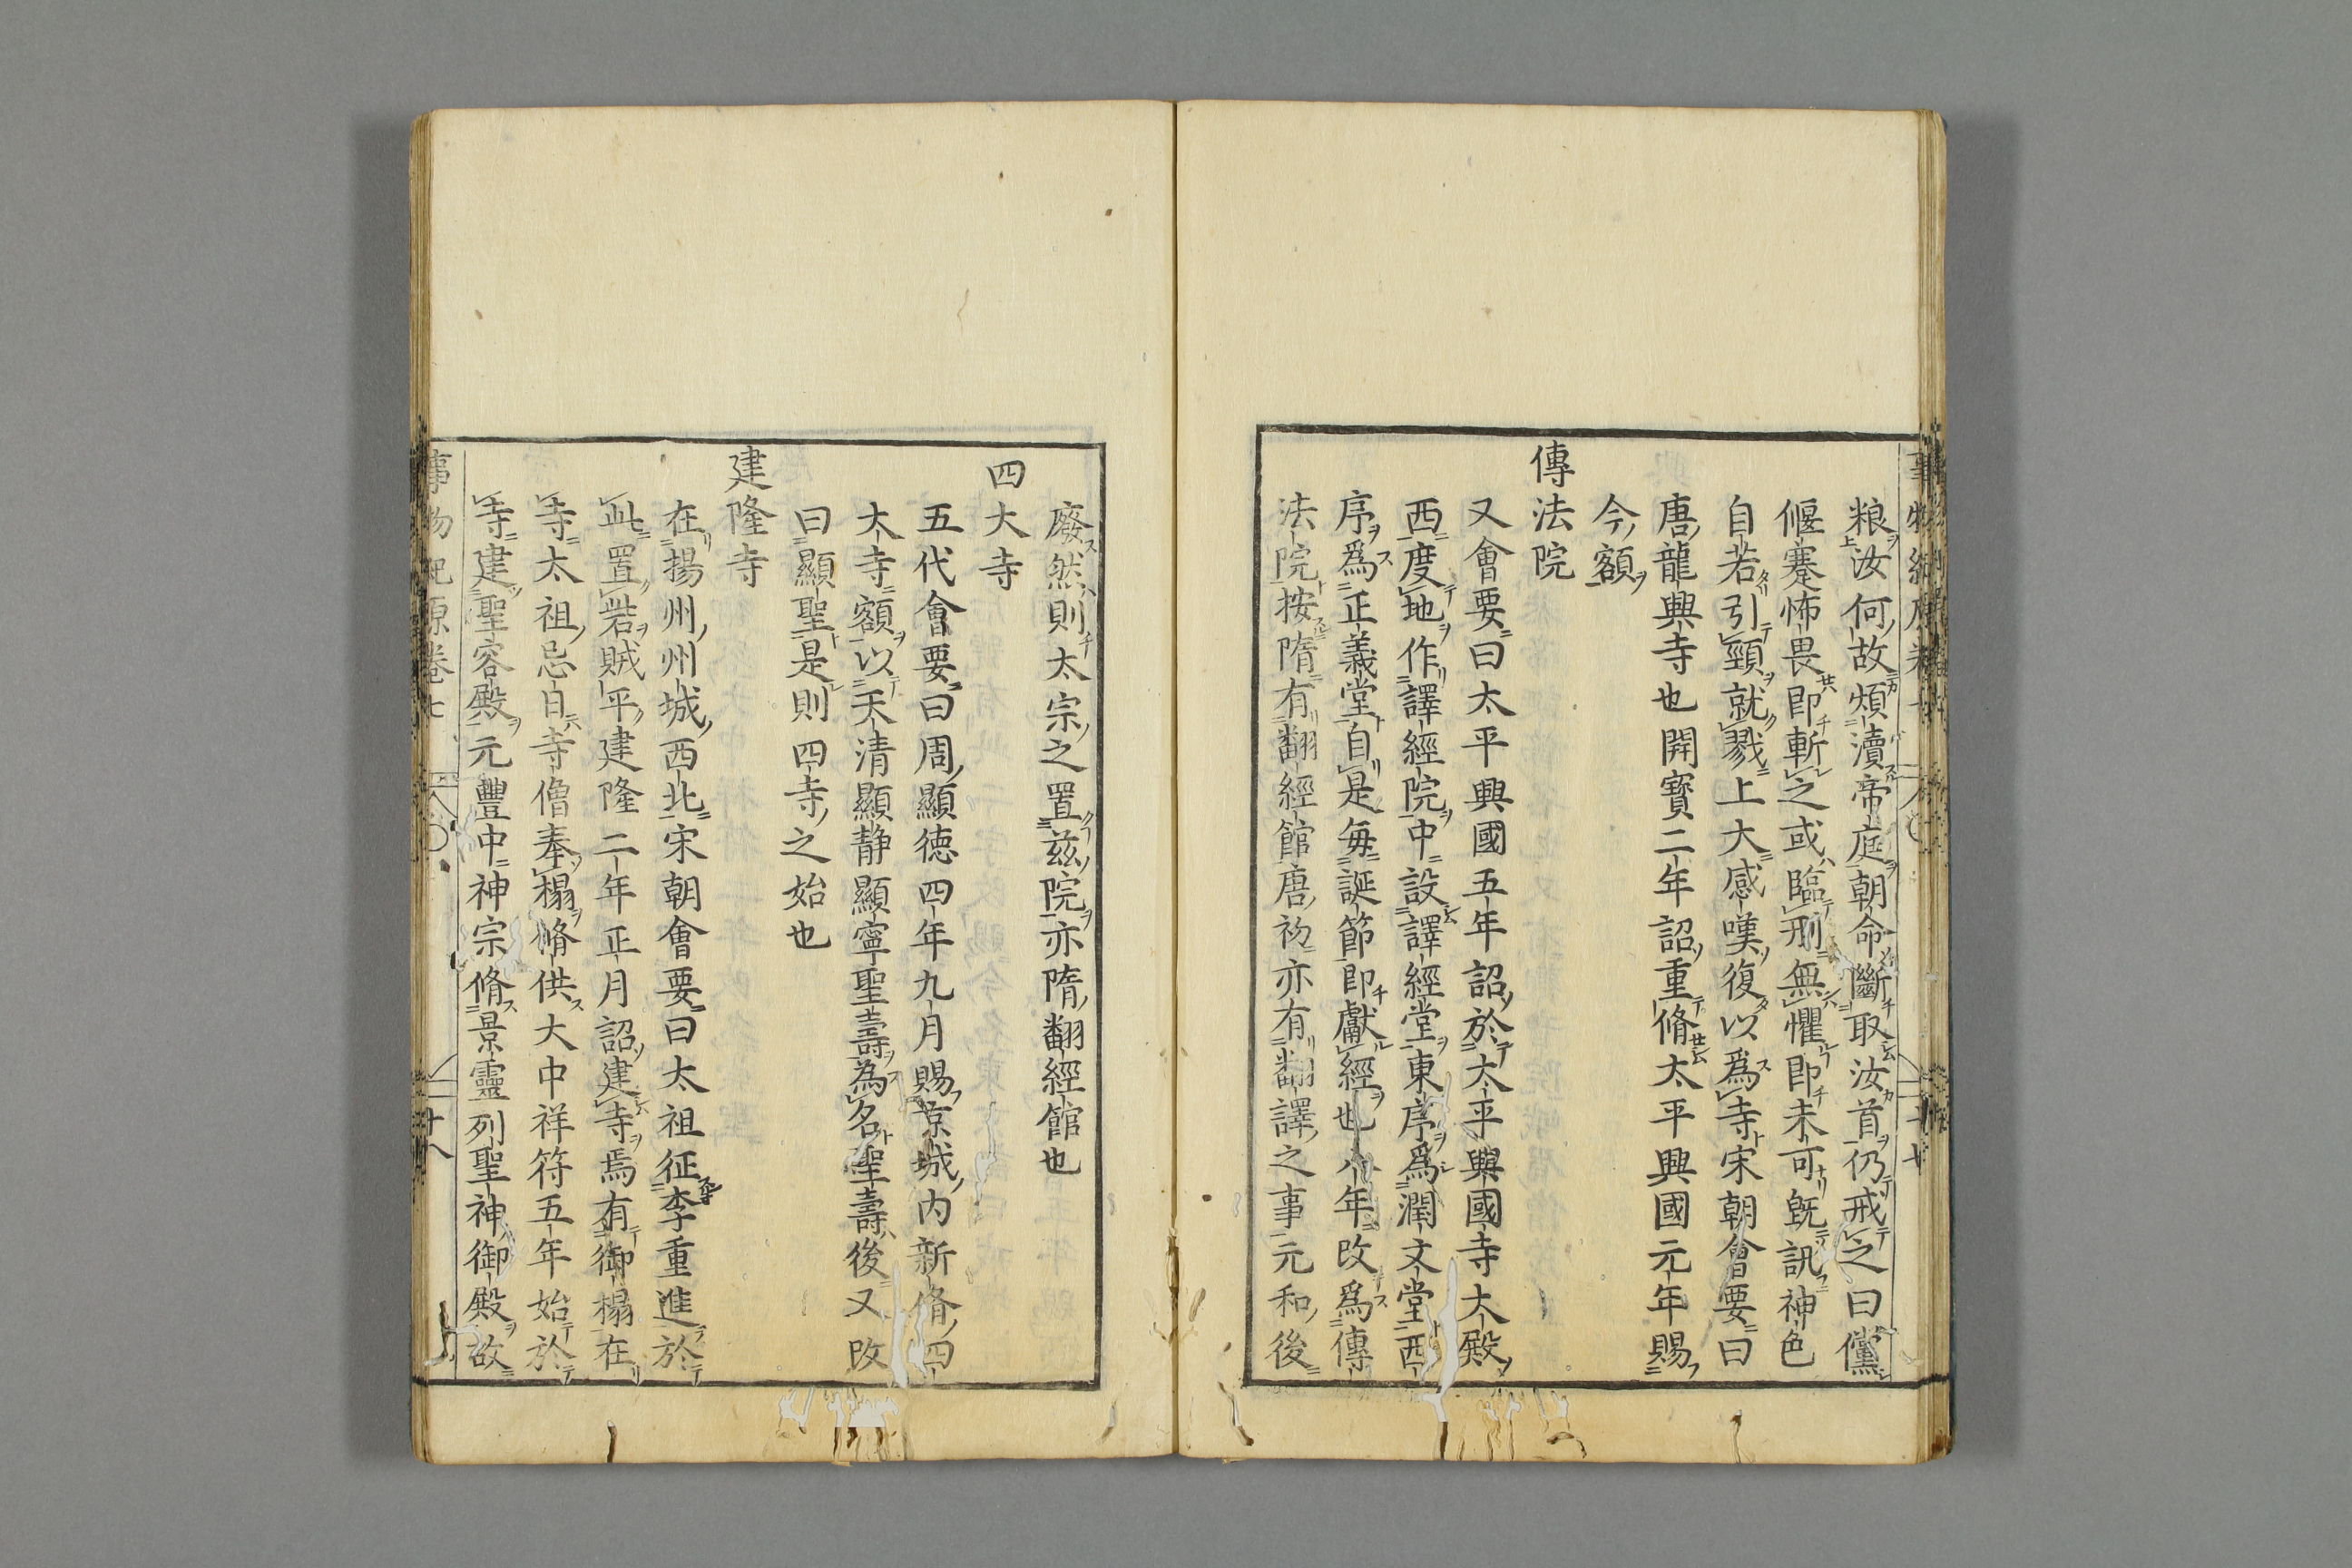 粮汝何故煩瀆帝庭朝命斷取汝首仍戒之曰儻
偃蹇怖畏即斬之或臨刑無懼即未可旣訊神色
自若引頸就戮上大感嘆復以爲寺宋朝會要曰
唐龍興寺也開寳二年詔重脩太平興國元年賜
今額
傳法院
又會要曰太平興國五年詔於太平興國寺大殿
西度地作譯經院中設譯經堂東序爲潤文堂西
序爲正義堂自是每誕節即獻經也八年改爲傳
法院按隋有翻經館唐初亦有翻譯之事元和後
廢然則太宗之置茲院亦隋翻經館也
四大寺
五代會要曰周顯德四年九月賜京城内新脩四
大寺額以天清顯静顯寧聖壽為名聖壽後又改
曰顯聖是則四寺之始也
建隆寺
在揚州州城西北宋朝會要曰太祖征李重進於
此置砦賊平建隆二年正月詔建寺焉有御榻在
寺太祖忌日寺僧奉榻脩供大中祥符五年始於
寺建聖容殿元豐中神宗脩景靈列聖神御殿故
事物紀原卷七 廿八